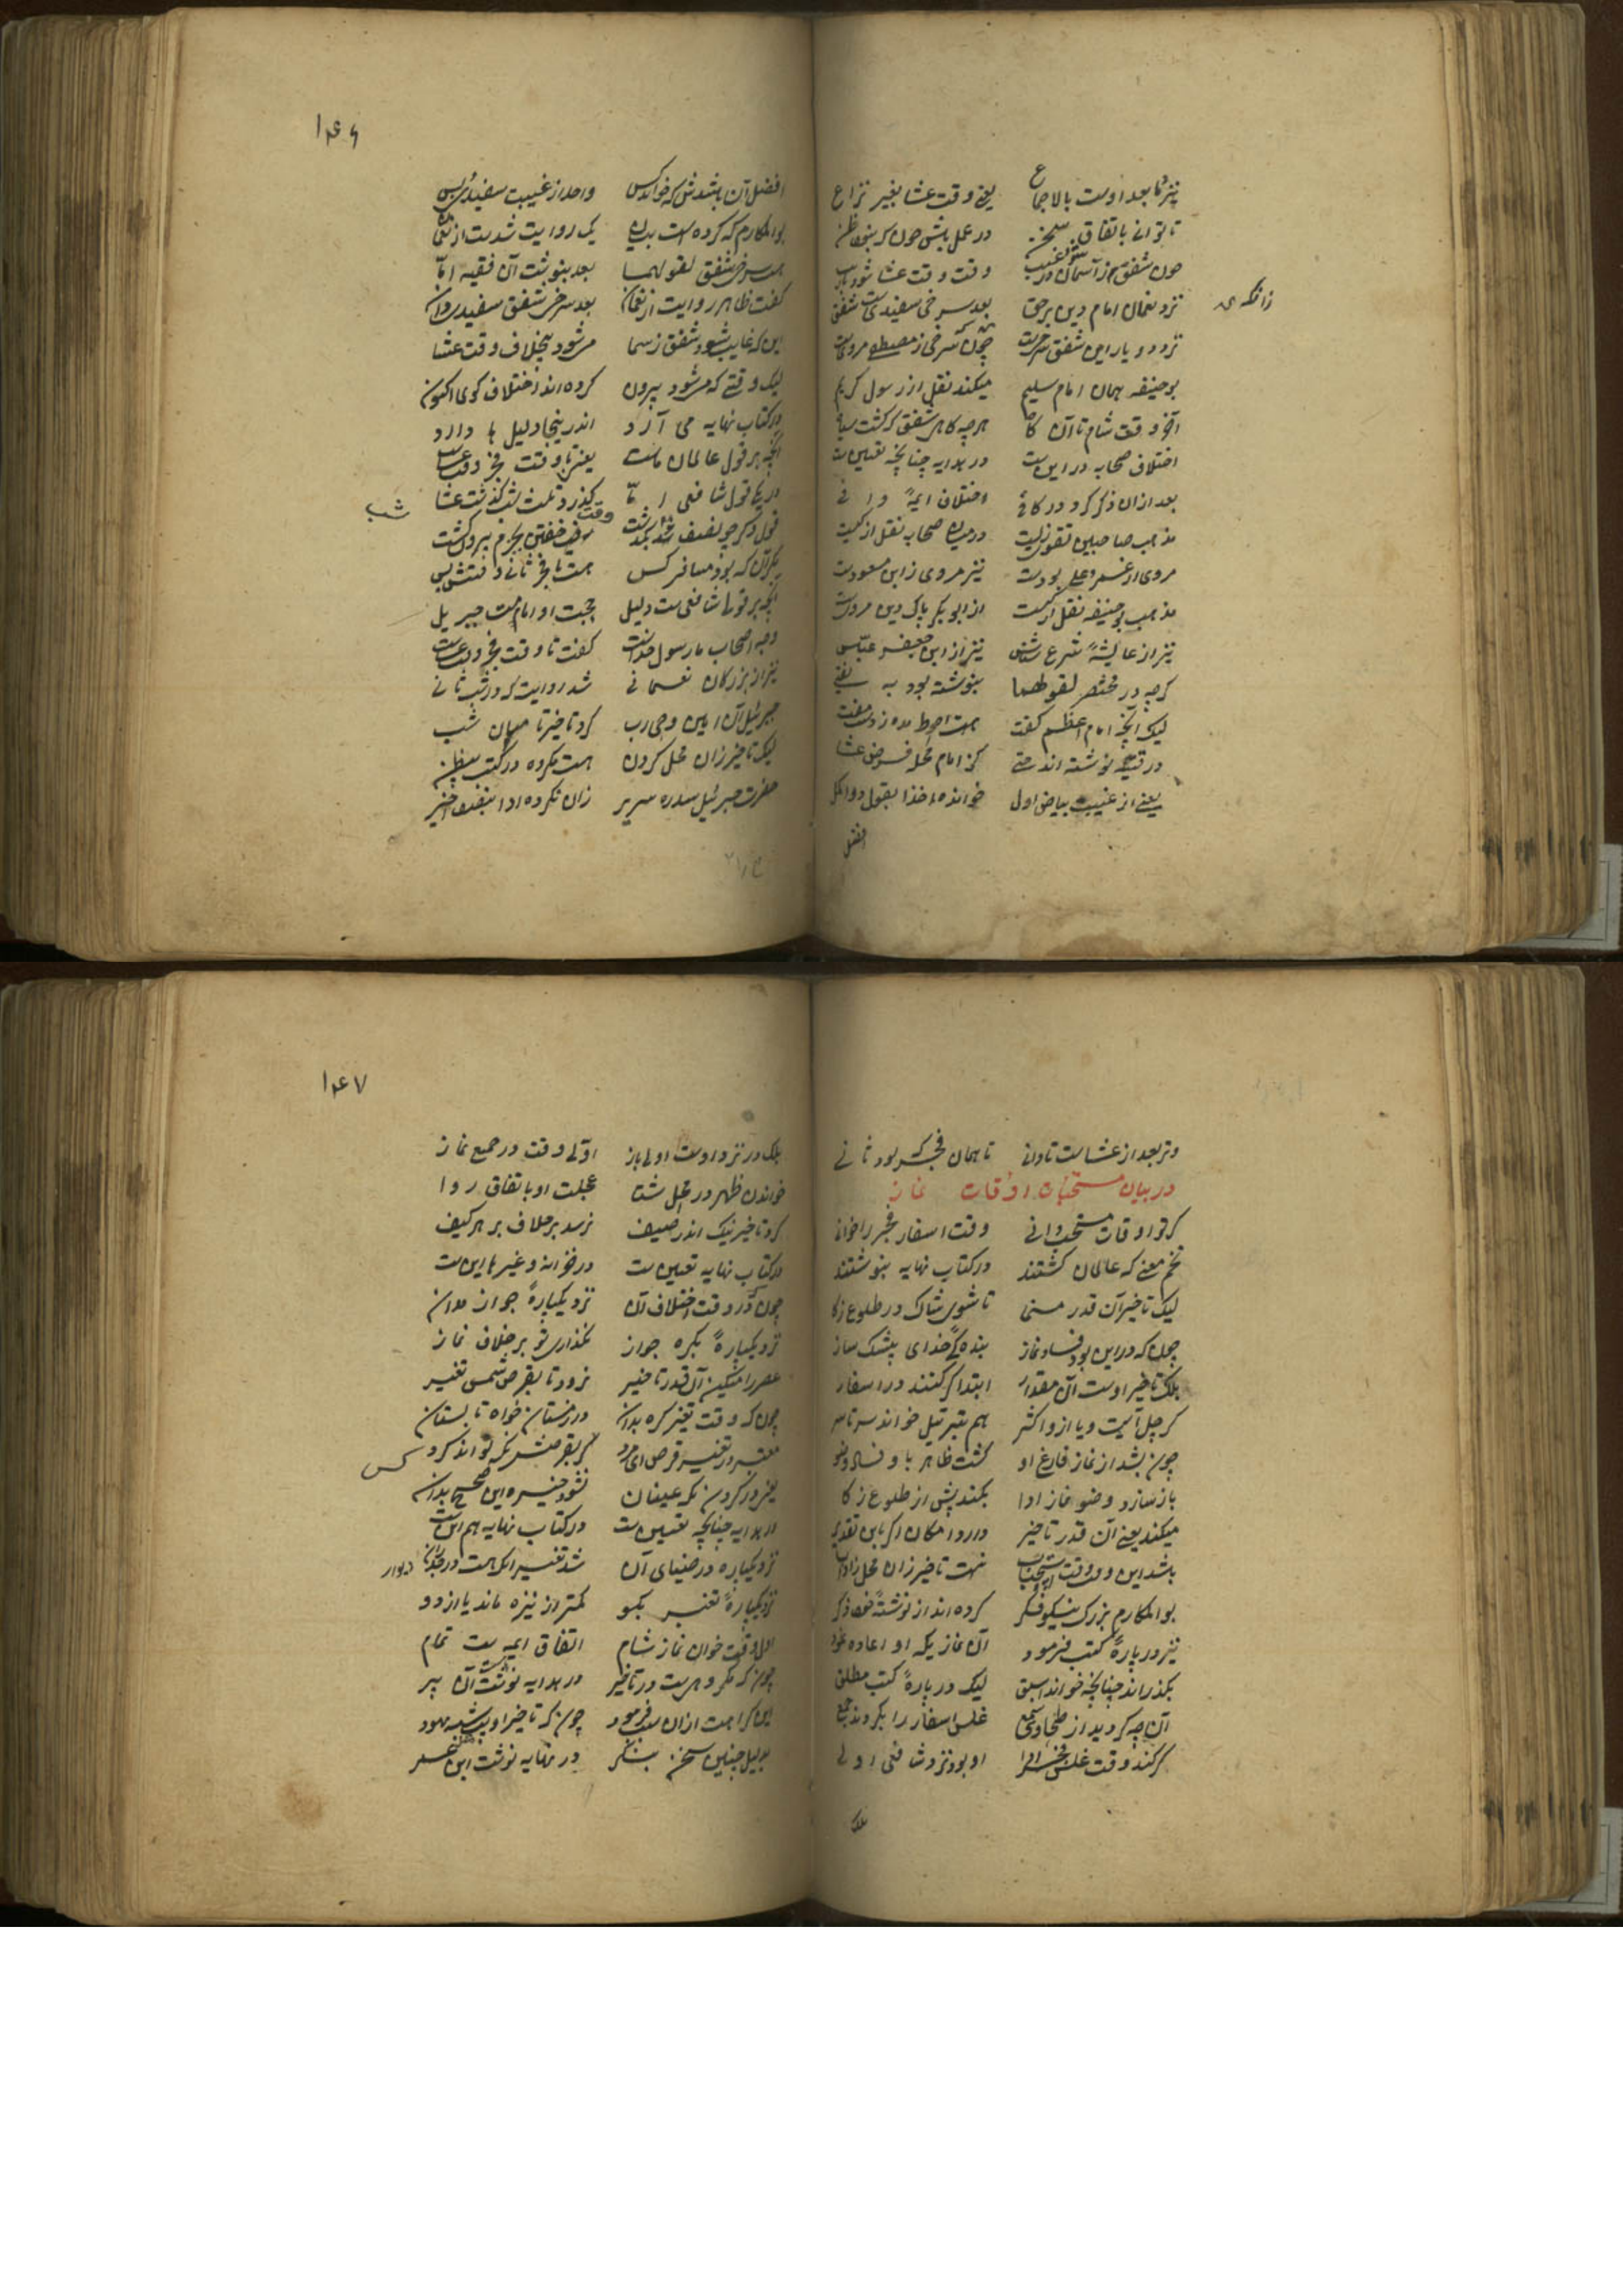 نیز ما بعد اوست بالاجماع یعنی وقت عشا بغیر نزاع
تا توانی باتفاق سخن در عمل باش چون که بنماظن
چون شفق از آسمان وقت وقت عشا شود
نزد نعمان امام دین برحق بعد سرخی سفیدی است شفق
زانکه
نزد دو یار این شفق سرخیست چون که سرخی ز مصطفی مرویست
بوحنیفه همان امام سلیم میکند نقل از رسول کریم
آخر وقت شام تا آن گاه هرچه گاهی شفق که گشت سیاه
اختلاف صحابه در این ست در هدایه چنانچه تعیین ست
بعد ازان ذکر کرد در کافی اختلاف ایمهٔ وافی
مذهب صاحبین تقویست در میان صحابه نقل از کیست
مروی از عمر و علی بودست نیز مروی ز ابن مسعودست
مذهب بوحنیفه نقل از کیست از ابوبکر پاک دین مرویست
نیز از عایشهٔ شرع شناس نیز از ابن جعفر عباس
گرچه در مختصر لقولهما بنوشته بود به یفتی
لیک آنچه امام اعظم گفت هست احوط
در قنیه نوشته اند حتی گر امام محله فرض عشا
یعنی از غیبت بیاض اول خوانده ماخذا بقول دو اکمل
افضل
۱۴۶
افضل آن باشدش که خواند کس واحد از غیبت سفیدی پس
بوالمکارم که کرده است بیان یک روایت شدست از نعمان
هست سرخی شفق لقولهما بعد بنوشت آن فقیه اما
گفت ظاهر روایت از نعمان بعد سرخی شفق سفیدی دان
این که غایب شود شفق ز سما میشود بیخلاف وقت عشا
لیک وقتی که میشود بیرون کرده اند اختلاف کوی اکنون
در کتاب نهایه می آرد اندرینجا دلیل ها دارد
آنچه بر قول عالمان ماست یعنی تا وقت فجر وقت عشاست
در یک قول شافعی اما گذرد ثلث شب گذشت عشا
شب
قول دیگر چو نصف شب بگذشت وقت خفتن بجرم بیرون گشت
مگر آن که بود مسافر کس هست تا فجر ثانی وقتش بس
آنچه بر قول شافعی ست دلیل حجت او امامت جبریل
وجه اصحاب ما رسول خداست گفت تا وقت فجر وقت عشاست
نیز از بزرگان نعمانی شد روایت که در شب ثانی
جبرئیل آن امین وحی رب کرد تاخیر تا میان شب
لیک تاخیر زان محل کردن هست مکروه در کتب
حضرت جبرئیل سدره سریر زان نکرده ادا بنصف اخیر
وتر بعد از عشاست تا دانی تا همان فجر که بود ثانی
در بیان مستحبات اوقات نماز
گر تو اوقات مستحب دانی وقت اسفار فجر را خوانی
تخم معنی که عالمان کشتند در کتاب نهایه بنوشتند
لیک تاخیر آن قدر منما تا شوی شاک در طلوع ذکا
چون که در این بود فساد نماز بندهٔ خدای بیشک ساز
بلک تاخیر اوست آن مقدار ابتدا گر کنند در اسفار
گر چل آیت و یا از و اکثر هم بترتیل خواند سرتاسر
چون بشد از نماز فارغ او گشت ظاهر باو فساد وضو
باز سازد وضو نماز ادا بکند پیش از طلوع ذکا
میکند یعنی آن قدر تاخیر دارد امکان اگر باین تقدیر
باشد این وقت وقت استحباب نیست تاخیر زان محل
بوالمکارم بزرگ نیکو فکر کرده اند از نوشتهٔ خود ذکر
نیز در بارهٔ کتب فرمود آن نماز یکه او اعاده نمود
بگذراند چنانچه خواند اسبق لیک در بارهٔ کتب مطلق
آن چه گردید از طحاوی سمع غلس اسفار را بکردند جمع
گر کند وقت غلس فجر ادا او بود نزد شافعی اولی
بلک
۱۴۷
بلک در نزد اوست اولی باز اول وقت در جمیع نماز
خواندن ظهر در محل شتا عجلت او باتفاق روا
کرد تاخیر نیک اندر صیف نرسد بر خلاف بر هر کیف
در کتاب نهایه تعیین ست در خزانه و غیرها این ست
چون که در وقت اختلاف آن نزد یکپارهٔ جواز مدان
نزد یکپارهٔ بکره جواز نگذاری تو بر خلاف نماز
عصر را میکن آن قدر تاخیر نرود تا بقرص شمس تغییر
چون که وقت تغیر کره بدان در زمستان خواه تابستان
معتبر در تغییر قرص ای مرد گر بقرصش نگه تواند کرد
کس
یعنی در کردن نگه عینان نشود خیره این صحیح بدان
در هدایه چنانچه تعیین ست در کتاب نهایه هم این ست
نزد یکپاره در ضیای آن شد تغییر
دیوار
نزد یکپارهٔ تغییر بگو کمتر از نیزه ماند یا از دو
اول وقت خوان نماز شام اتفاق ایمه ست تمام
چون که مکروهیت در تاخیر در هدایه نوشت آن پیر
این کراهت ازان سبب فرمود چون که تاخیر او شبیه یهود
بدلیل چنین سخن بنگر در نهایه نوشت ابن عمر